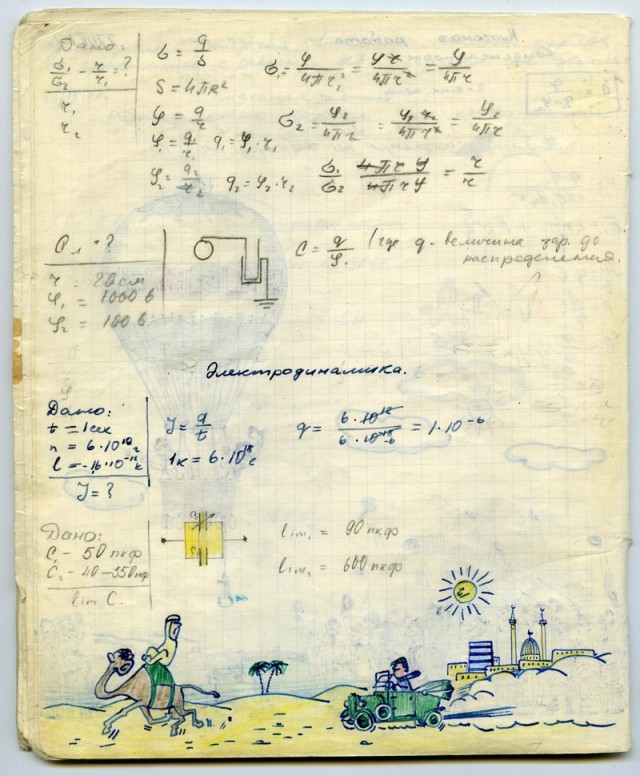 Дано:
σ₁/σ₂ - r/r₁ = ?
r₁
r₂
σ = q/S
S = 4πR²
φ = q/r
φ₁ = q₁/r₁ q₁ = φ₁ · r₁
φ₂ = q₂/r₂ q₂ = φ₂ · r₂
σ₁ = φ/4πr₁² = φr/4πr² = φ/4πr
σ₂ = φ₂/4πr = φ₂ r₂/4πr² = φ₂/4πr
σ₁/σ₂ 4πrφ/4πrφ = r/r
C л = ?
r = 20 см
φ₁ = 1000 в
φ₂ = 100 в
C = q/φ₁ /где q - величина зар. до
распределения.
Электродинамика.
Дано:
t = 1 сек
n = 6 · 10
J = ?
J = q/t
1к = 6 · 10¹⁸
q = = 1 · 10⁻⁶
Дано:
C₁ - 50 пкф
C₂ - 40 - 550 пф
lim C.
lim₁ = 90 пкф
lim₂ = 600 пкф